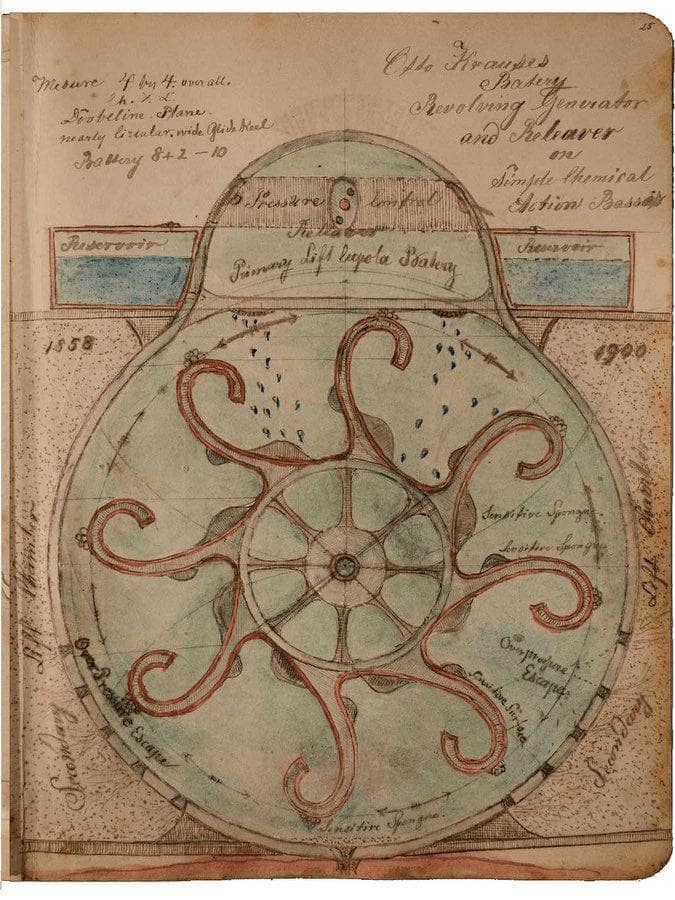 25
Mesure 4 by 4. overall.
nearly circular. wide Glide Keel
Battery 8+2 – 10
Otto Krauses
Batery
Revolving Generator
and Releaver
on
Simple Chemical
Action
Pressure control
Releaver
Primary Lift Cupola Batery
Reservoir
Reservoir
1858
1900
Lift Chamber
Lift Chamber
Sensitive Sponge.
Sensitive Sponge
Overpressure
Escape
Over Pressure Escape
Sensitive Surface
Sensitive Sponge
Primary
Secondary